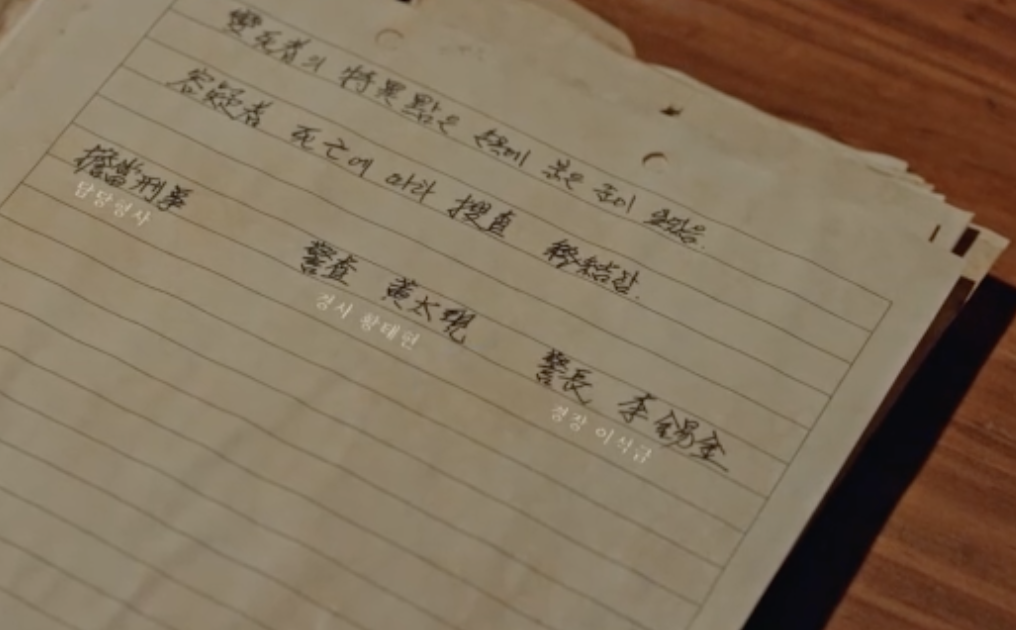 變死者의 特異點은 손목에 붉은 줄이 있었음.
容疑者 死亡에 따라 搜査 終結함.
擔當刑事
담당형사
警査 黃太現
경사 황태현
警長 李錫金
경장 이석금